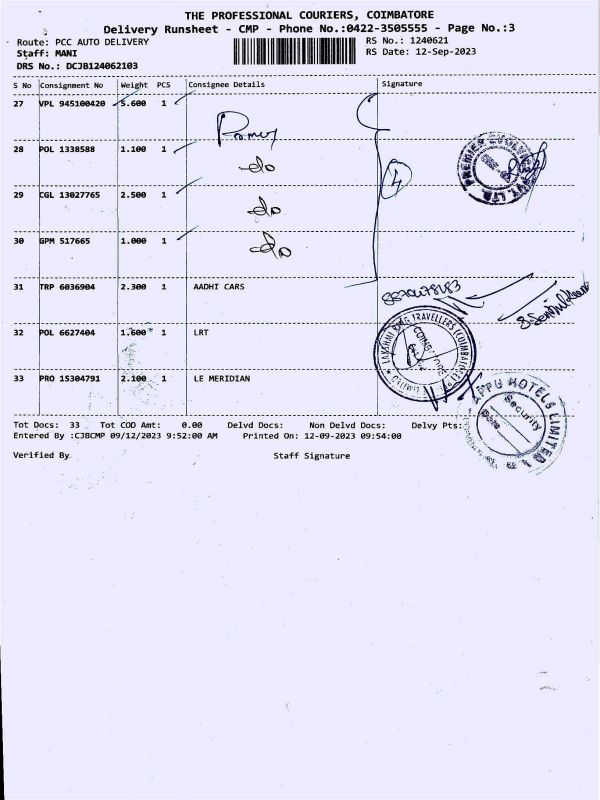 THE PROFESSIONAL COURIERS, COIMBATORE
Delivery Runsheet - CMP - Phone No.:0422-3505555 - Page No.:3
Route: PCC AUTO DELIVERY
RS No.: 1240621
Staff: MANI
RS Date: 12-Sep-2023
DRS No.: DCJB124062103
S No Consignment No Weight PCS Consignee Details Signature
27 VPL 945100420 5.600 1
28 POL 1338588 1.100 1 do
29 CGL 13027765 2.500 1 do
4
30 GPM 517665 1.000 1 do
PREMIER EVOLVICS PVT. LTD.
31 TRP 6036904 2.300 1 AADHI CARS
32 POL 6627404 1.600 1 LRT
LAKSHMI RING TRAVELLERS (COIMBATORE)
33 PRO 15304791 2.100 1 LE MERIDIAN
APPU HOTELS LIMITED
Security
Date
Tot Docs: 33 Tot COD Amt: 0.00 Delvd Docs: Non Delvd Docs: Delvy Pts:
Entered By :CJBCMP 09/12/2023 9:52:00 AM Printed On: 12-09-2023 09:54:00
Verified By Staff Signature